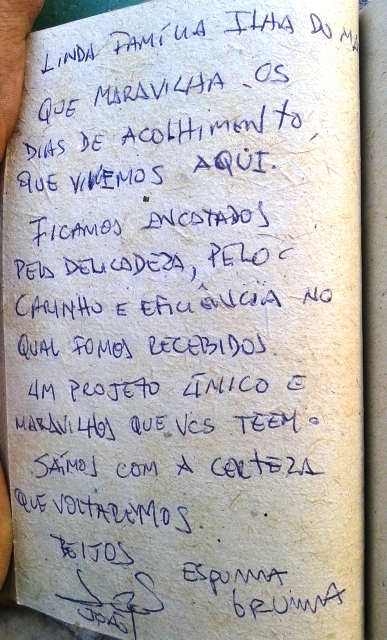 LINDA FAMÍLIA ILHA DO MA
QUE MARAVILHA OS
DIAS DE ACOLHIMENTO,
QUE VIVEMOS AQUI.
FICAMOS ENCATADOS
PELA DELICADEZA, PELO
CARINHO E EFICIÊNCIA NO
QUAL FOMOS RECEBIDOS.
UM PROJETO ÚNICO E
MARAVILHOS QUE VCS TEEM.
SAÍMOS COM A CERTEZA
QUE VOLTAREMOS.
BEIJOS
JOÃO